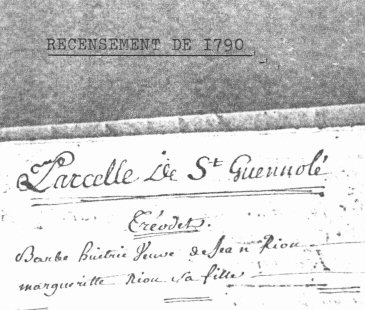 RECENSEMENT DE 1790
Parcelle De St Guennolé
Créodets.
Barbe huitric Veuve de Jean Riou
margueritte Riou sa fille